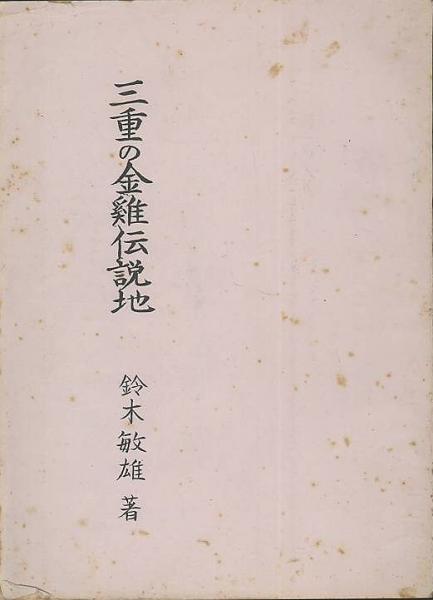 三重の金雞伝説地
鈴木敏雄 著